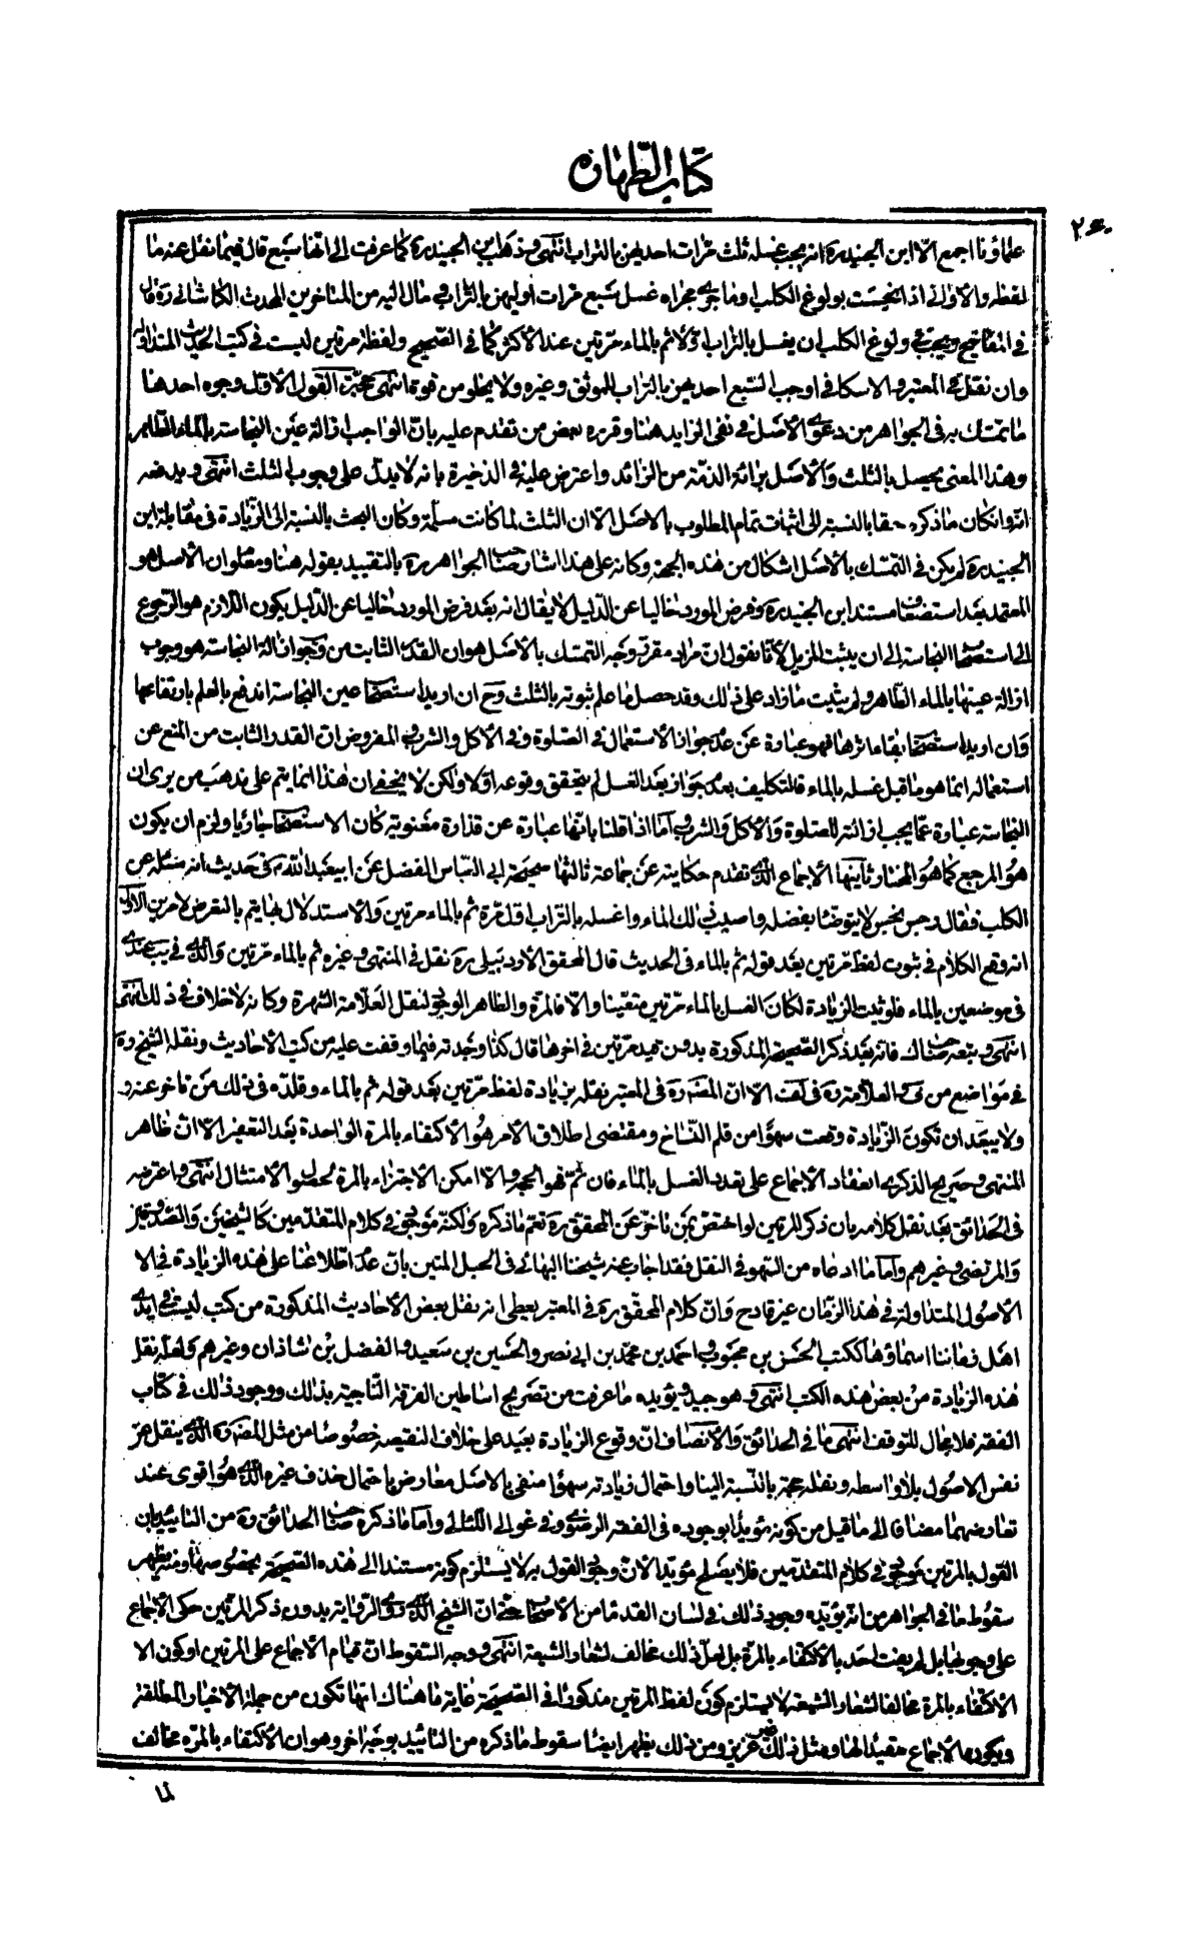 كتاب الطهارة
٢٤٠
علماؤنا اجمع الّا ابن الجنيد ره انه يجب غسله ثلث مرّات احديهن بالتراب انتهى وذهب ابن الجنيد ره كما عرفت الى انها سبع قال فيما نقل عنه ما
لفظه والاوانى اذا نجست بولوغ الكلب او ما جرى مجراه غسل سبع مرات اوليهن بالتراب و مال اليه من المتاخرين المحدث الكاشانى ره قال
فى المفاتيح ويجب فى ولوغ الكلب ان يغسل بالتراب اولا ثم بالماء مرّتين عند الأكثر كما فى الصّحيح ولفظة مرتين ليست فى كتب الحديث المتداولة
وان نقلت فى المعتبر والاسكافى اوجب السّبع احديهن بالتراب للموثق وغيره ولا يخلو من قوة انتهى حجّة القول الأوّل وجوه احدها
ما تمسّك به فى الجواهر من دعوى الأصل فى نفى الزايد هنا وقرره بعض من تقدم عليه بانّ الواجب ازالة عين النجاسة بالماء الطاهر
وهذا المعنى يحصل بالثلث والأصل برائة الذمّة من الزائد واعترض عليه فى الذخيرة بانه لا يدلّ على وجوب الثلث انتهى ويدفعه
انه وان كان ما ذكره حقا بالنسبة الى اثبات تمام المطلوب بالاصل الا ان الثلث لما كانت مسلّمة وكان البحث بالنسبة الى الزّيادة فى مقابلة ابن
الجنيد ره لم يكن فى التمسّك بالأصل اشكال من هذه الجهة وكانه على هذا اشار صاحب الجواهر ره بالتقييد بقوله هنا ومعلوم ان الاصل هو
المعتمد بعد استضعاف مستند ابن الجنيد ره وفرض المورد خاليا عن الدّليل لا يقال انه بعد فرض المورد خاليا عن الدّليل يكون اللّازم هو الرّجوع
الى استصحاب النجاسة الى ان يثبت المزيل لأنا نقول ان مراد مقرر وجه التمسّك بالأصل هو ان القدر الثابت من وجوب ازالة النجاسة هو وجوب
ازالة عينها بالماء الطّاهر ولم يثبت ما زاد على ذلك وقد حصل ما علم ثبوته بالثلث وح ان اريد استصحاب عين النجاسة اندفع بالعلم بارتفاعها
وان اريد استصحاب بقاء اثرها فهو عبارة عن عدم جواز الاستعمال فى الصّلوة وفى الأكل والشرب و المفروض ان القدر الثابت من المنع عن
استعماله انما هو ما قبل غسله بالماء فالتكليف بعدم جوازه بعد الغسل لم يتحقق وقوعه اوّلا ولكن لا يخفى ان هذا انما يتم على مذهب من يرى ان
النجاسة عبارة عمّا يجب ازالته للصّلوة والأكل والشرب وامّا اذا قلنا بانّها عبارة عن قذارة معنوية كان الاستصحاب جاريا ولزم ان يكون
هو المرجع كما هو المختار ثانيها الأجماع الّذى تقدم حكايته عن جماعة ثالثها صحيحة ابى العبّاس الفضل عن ابيعبد الله ع فى حديث انه سئله عن
الكلب فقال رجس نجس لا يتوضّأ بفضله واصبب ذلك الماء واغسله بالتراب اوّل مرّة ثم بالماء مرتين والاستدلال بها يتم بالتعرض لامرين الأوّل
انه وقع الكلام فى ثبوت لفظ مرّتين بعد قوله ثم بالماء فى الحديث قال المحقق الأردبيلى ره نقل فى المنتهى وغيره ثم بالماء مرّتين والّذى فى يب عندى
فى موضعين بالماء فلو ثبت الزيادة لكان الغسل بالماء مرّتين متعيّنا والّا فالمرّة والظاهر الوجوب لنقل العلّامة الشهرة وكانه لا خلاف فى ذلك انتهى
انتهى وتبعه صاحب ك فانه بعد ذكر الصّحيحة المذكورة بدون قيد مرّتين فى اخرها قال كذا وجدته فيما وقفت عليه من كتب الأحاديث ونقله الشّيخ ره
فى مواضع من ف والعلامة ره فى لف الا انّ المصنّف ره فى المعتبر نقله بزيادة لفظ مرّتين بعد قوله ثم بالماء وقلّده فى ذلك من تاخر عنه و
ولا يبعد ان تكون الزّيادة وقعت سهوا من قلم النّساخ ومقتضى اطلاق الأمر هو الأكتفاء بالمرة الواحدة بعد التعفير الا انّ ظاهر
المنتهى وصريح الذكرى انعقاد الأجماع على تعدد الغسل بالماء فان تمّ فهو الحجّة والا امكن الأجتزاء بالمرة لحصول الامتثال انتهى واعترضه
فى الحدائق بعد نقل كلامه بان ذكر المرتين لو اختصّ بمن تاخّر عن المحقق ره لتم ما ذكره ولكنّه موجود فى كلام المتقدّمين كالشيخين والصّدوقين
والمرتضى وغيرهم وامّا ما ادعاه من السّهو فى النقل فقد اجاب عنه شيخنا البهائى فى الحبل المتين بانّ عدم اطّلاعنا على هذه الزيادة فى الا
الأصول المتداولة فى هذا الزّمان غير قادح وانّ كلام المحقّق ره فى المعتبر يعطى انه نقل بعض الأحاديث المذكورة من كتب ليست فى ايدى
اهل زماننا الا اسماؤها ككتب الحسن بن محبوب واحمد بن محمّد بن ابى نصر والحسين بن سعيد والفضل بن شاذان وغيرهم ولعلّه نقل
هذه الزيادة من بعض هذه الكتب انتهى وهو جيد ويؤيده ما عرفت من تصريح اساطين الفرقة النّاجية بذلك ووجود ذلك فى كتاب
الفقه فلا مجال للتوقف انتهى ما فى الحدائق والأنصاف انّ وقوع الزيادة بعيد على خلاف النقيصة خصوصا من مثل المصنّف ره الّذى ينقل عن
نفس الاصول بلا واسطه ونقله حجة بالنّسبة الينا واحتمال زيادته سهوا منفى بالاصل معارض باحتمال حذف غيره الّذى هو اقوى عند
تعارضهما مضافا الى ما قيل من كونه مؤيدا بوجوده فى الفقه الرضوى وفى غوالى اللئالى وامّا ما ذكره صاحب الحدائق ره من التّاييد بان
القول بالمرتين موجود فى كلام المتقدمين فلا يصلح مؤيدا لانّ وجود القول به لا يستلزم كونه مستندا الى هذه الصّحيحة بخصوصها ومنه يظهر
سقوط ما فى الجواهر من انّه يؤيّده وجود ذلك فى لسان القدماء من الاصحاب حتى انّ الشيخ الّذى روى الرّواية بدون ذكر المرّتين حكى الأجماع
على وجوبها بل لم يعرف احد بالأكتفاء بالمرّة بل لعلّ ذلك مخالف لشعار الشيعة انتهى ووجه السّقوط انّ قيام الأجماع على المرتين او كون الا
الاكتفاء بالمرة مخالفا لشعار الشيعة لا يستلزم كون لفظ المرتين مذكورا فى الصّحيحة غاية ما هناك انها تكون من جملة الأخبار المطلقة
ويكون الأجماع مقيدا لها ومثل ذلك غير عزيز ومن ذلك يظهر ايضا سقوط ما ذكره من التاييد بوجه اخر وهو ان الأكتفاء بالمرّه مخالف